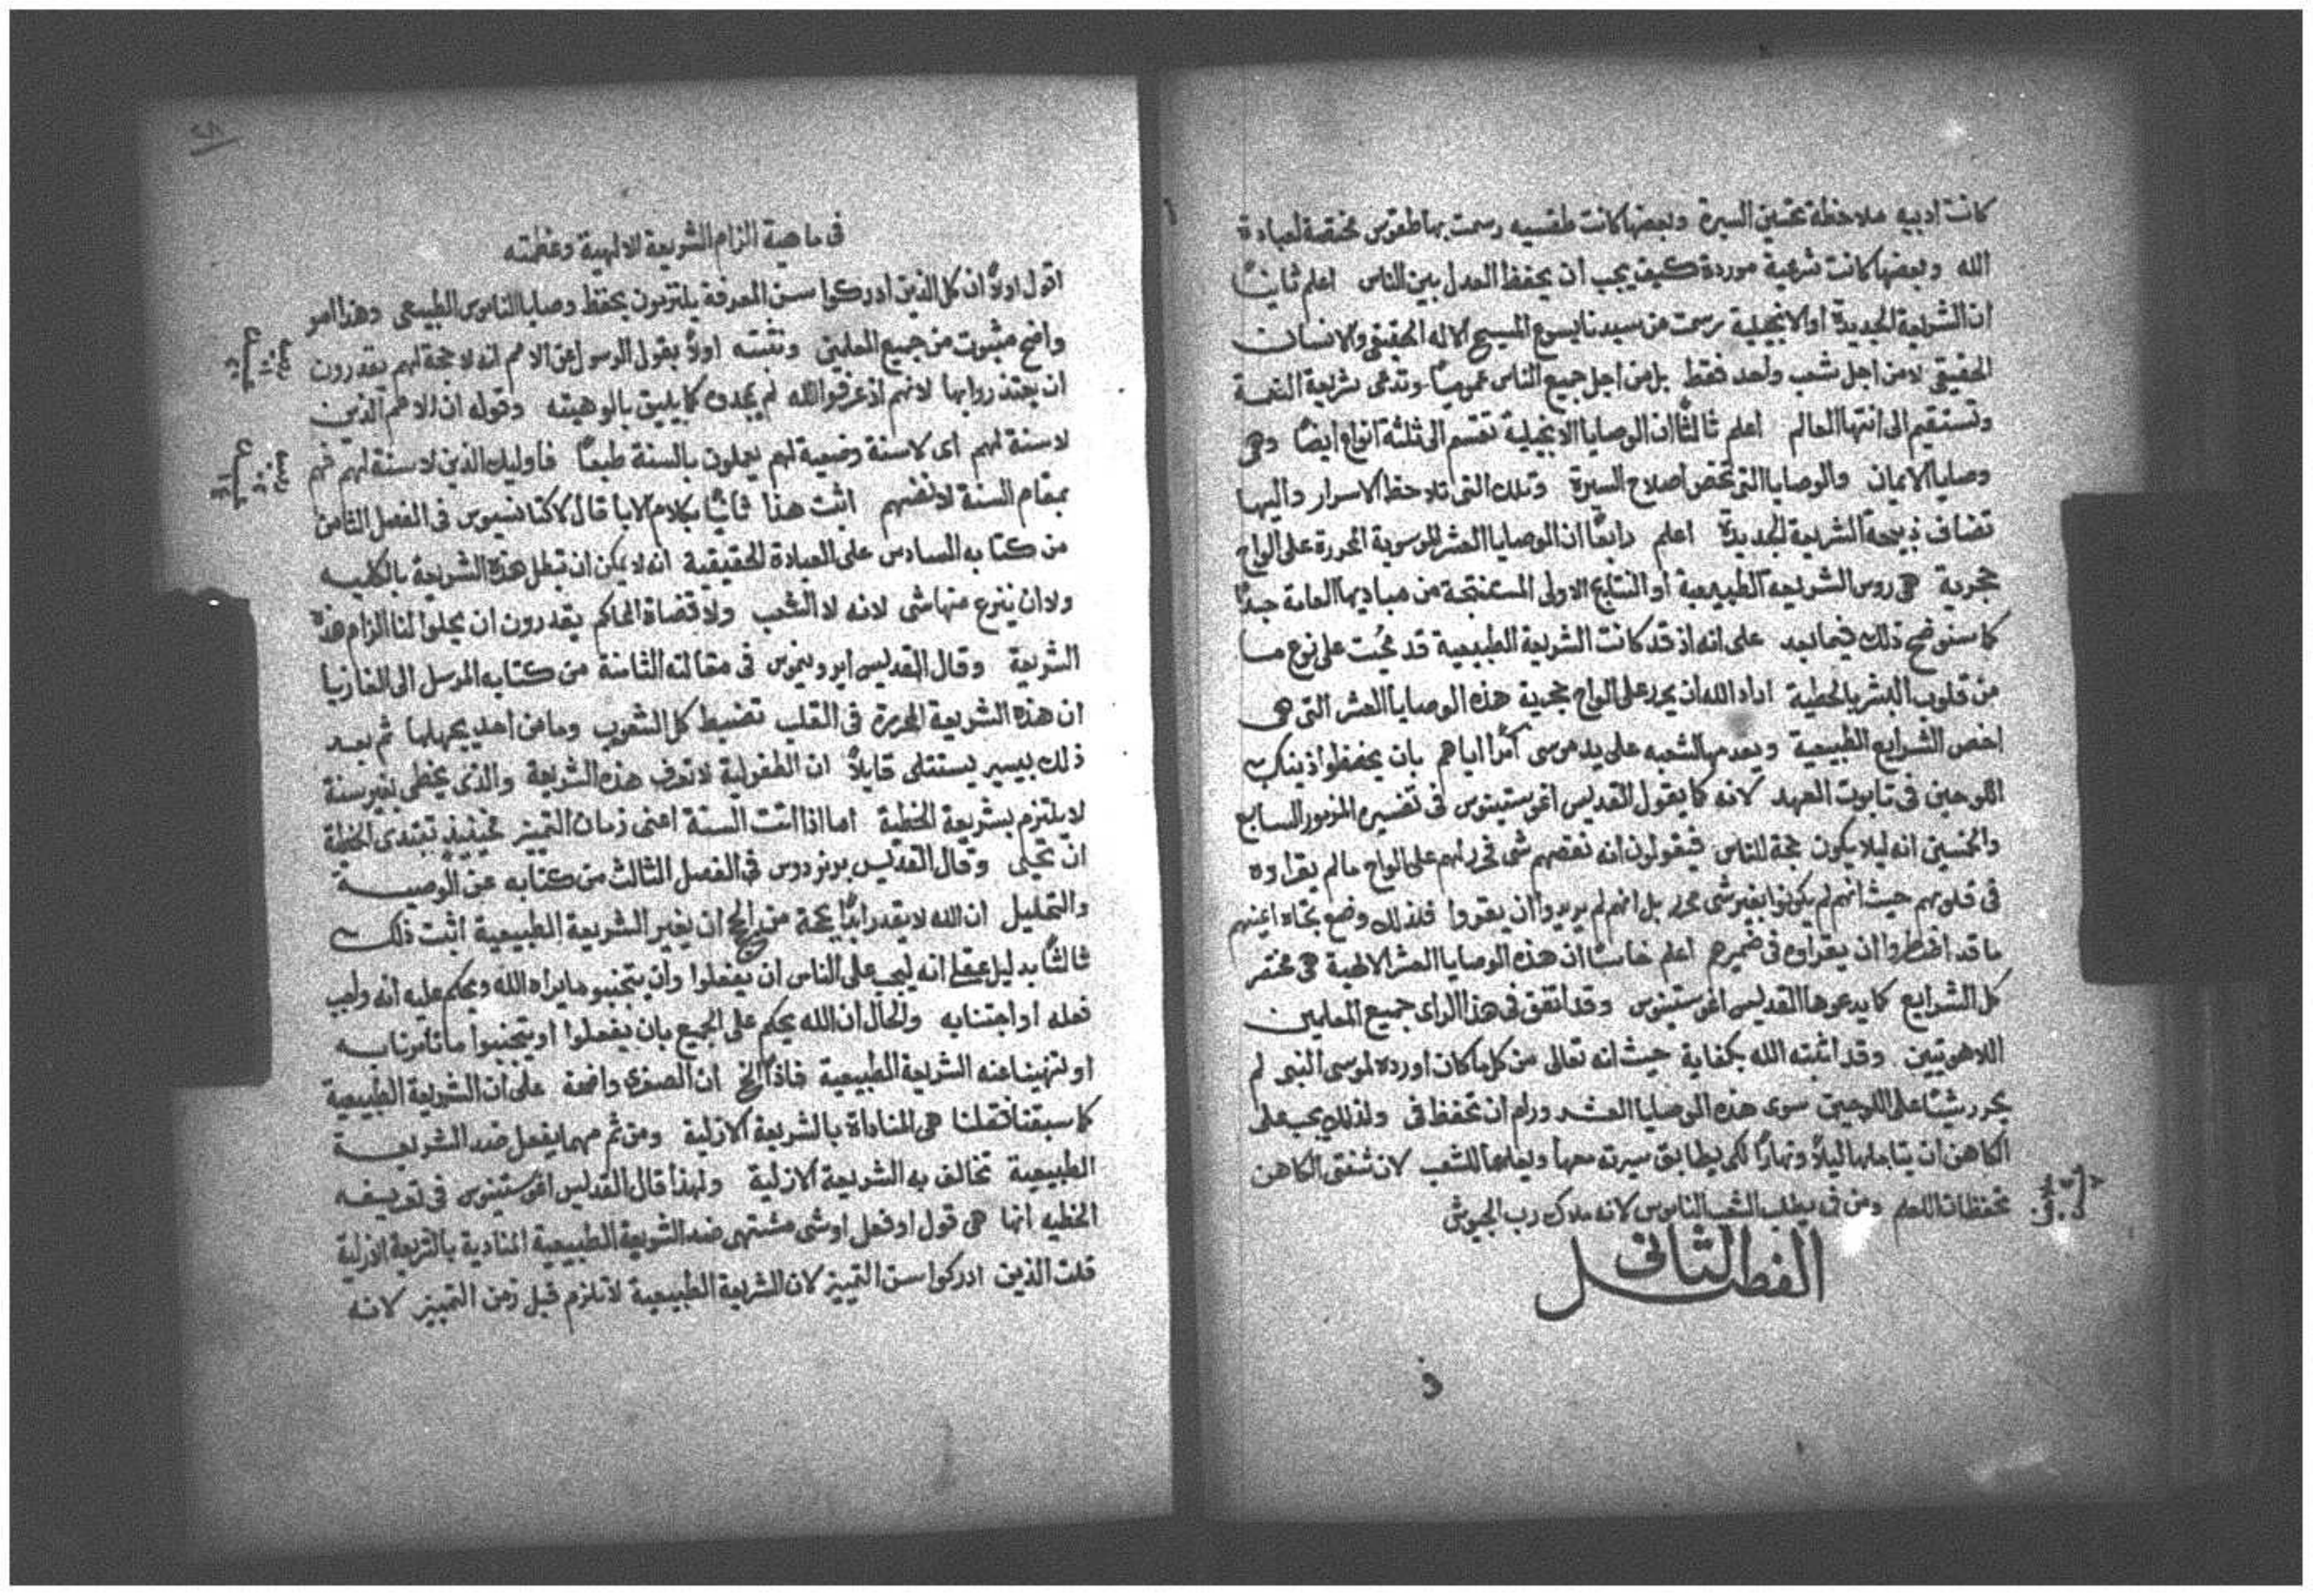 كانت ادبيه ملاحظة تحسين السيرة وبعضها كانت طقسيه رسمت بها طقوس مختصة لعبادة
الله وبعضها كانت شرعية موردة كيف يجب ان يحفظ العدل بين الناس اعلم ثانيًا
ان الشريعة الجديدة او الانجيلية رسمت من سيدنا يسوع المسيح الاله الحقيقي والانسان
الحقيقي لا من اجل شعب واحد فقط بل من اجل جميع الناس عموميًا وتدعى شريعة النعمة
وتستقيم الى انتها العالم اعلم ثالثًا ان الوصايا الانجيلية تقسم الى ثلثة انواع ايضًا وهي
وصايا الايمان والوصايا التي تخص اصلاح السيرة وتلك التي تلاحظ الاسرار واليها
تضاف ذبيحة الشريعة الجديدة اعلم رابعًا ان الوصايا العشر الموسوية المحررة على الواح
حجرية هي روس الشريعة الطبيعية او النتايج الاولى المستنتجة من مباديها العامة جيدًا
كما سنوضح ذلك فيما بعد على انه اذ قد كانت الشريعة الطبيعية قد مُحيت على نوع ما
من قلوب البشر بالخطية اراد الله ان يحرر على الواح حجرية هذه الوصايا العشر التي هي
اخص الشرايع الطبيعية ويعدمها لشعبه على يد موسى آمرًا اياهم بان يحفظوا ذينك
اللوحين في تابوت العهد لانه كما يقول القديس اغوستينوس في تفسيره المزمور السابع
والخمسين انه ليلا يكون حجة للناس فيقولون انه نقصهم شي فحرر لهم على الواح ما لم يقراوه
في قلوبهم حيث انهم لم يكونوا بغير شي محرر بل انهم لم يريدوا ان يقروا فلذلك وضع تجاه اعينهم
ما قد اضطروا ان يقراوه في ضميرهم اعلم خامسًا ان هذه الوصايا العشر الالهية هي مختصر
كل الشرايع كما يدعوها القديس اغوستينوس وقد اتفق في هذا الراى جميع المعلمين
اللاهوتيين وقد اثبته الله بكفاية حيث انه تعالى من كل ما كان اورده لموسى النبي لم
يحرر شيئًا على اللوحين سوى هذه الوصايا العشر ورام ان تحفظ في ولذلك يجب على
الكاهن ان يتاملها ليلاً ونهارًا لكي يطابق سيرته معها ويعلمها للشعب لان شفتى الكاهن
تحفظان العلم ومن فمه يطلب الشعب الناموس لانه ملاك رب الجيوش
ملاخيا
الفصل الثاني
في ماهية الزام الشريعة الالهية وعظمته
اقول اولاً ان كل الذين ادركوا سن المعرفة يلتزمون بحفظ وصايا الناموس الطبيعي وهذا امر
واضح مثبوت من جميع المعلمين ونثبته اولاً بقول الرسول عن الامم انه لا حجة لهم يقدرون
ان يعتذروا بها لانهم اذ عرفوا الله لم يمجدوه كما يليق بالوهيته وقوله ان الامم الذين
لا سنة لهم اى لا سنة وضعية لهم يعملون بالسنة طبعًا فاوليك الذين لا سنة لهم فهم
بمقام السنة لانفسهم اثبت هذا ثانيًا بكلام الابا قال لاكتانسيوس في الفصل الثامن
من كتابه السادس على العبادة الحقيقية انه لا يمكن ان تبطل هذه الشريعة بالكليه
ولا ان ينزع منها شي لانه لا الشعب ولا قضاة المحاكم يقدرون ان يحلوا لنا الزام هذه
الشريعة وقال القديس ايرونيموس في مقالته الثامنة من كتابه المرسل الى الغازيا
ان هذه الشريعة المحررة في القلب تضبط كل الشعوب وما من احد يجهلها ثم بعد
ذلك بيسير يستثنى قايلاً ان الطفولية لا تعرف هذه الشريعة والذى يخطي بغير سنة
لا يلتزم بشريعة الخطية اما اذا اتت السنة اعني زمان التمييز فحينيذٍ تبتدى الخطية
ان تحيى وقال القديس برنردوس في الفصل الثالث من كتابه عن الوصية
والتحليل ان الله لا يقدر ابدًا بحجة من الحجج ان يغير الشريعة الطبيعية اثبت ذلك
ثالثًا بدليل عقلي انه ليجب على الناس ان يفعلوا وان يتجنبوا ما يراه الله ويحكم عليه انه واجب
فعله او اجتنابه والحال ان الله يحكم على الجميع بان يفعلوا او يتجنبوا ما تامرنا به
او تنهينا عنه الشريعة الطبيعية فاذًا الخ ان الصغرى واضحة على ان الشريعة الطبيعية
كما سبقنا فقلنا هي المناداة بالشريعة الازلية ومن ثم مهما يفعل ضد الشريعة
الطبيعية تخالف به الشريعة الازلية ولهذا قال القديس اغوستينوس في تعريفه
الخطيه انها هي قول او فعل او شي مشتهى ضد الشريعة الطبيعية المنادية بالشريعة الازلية
قلت الذين ادركوا سن التمييز لان الشريعة الطبيعية لا تلزم قبل زمن التمييز لانه